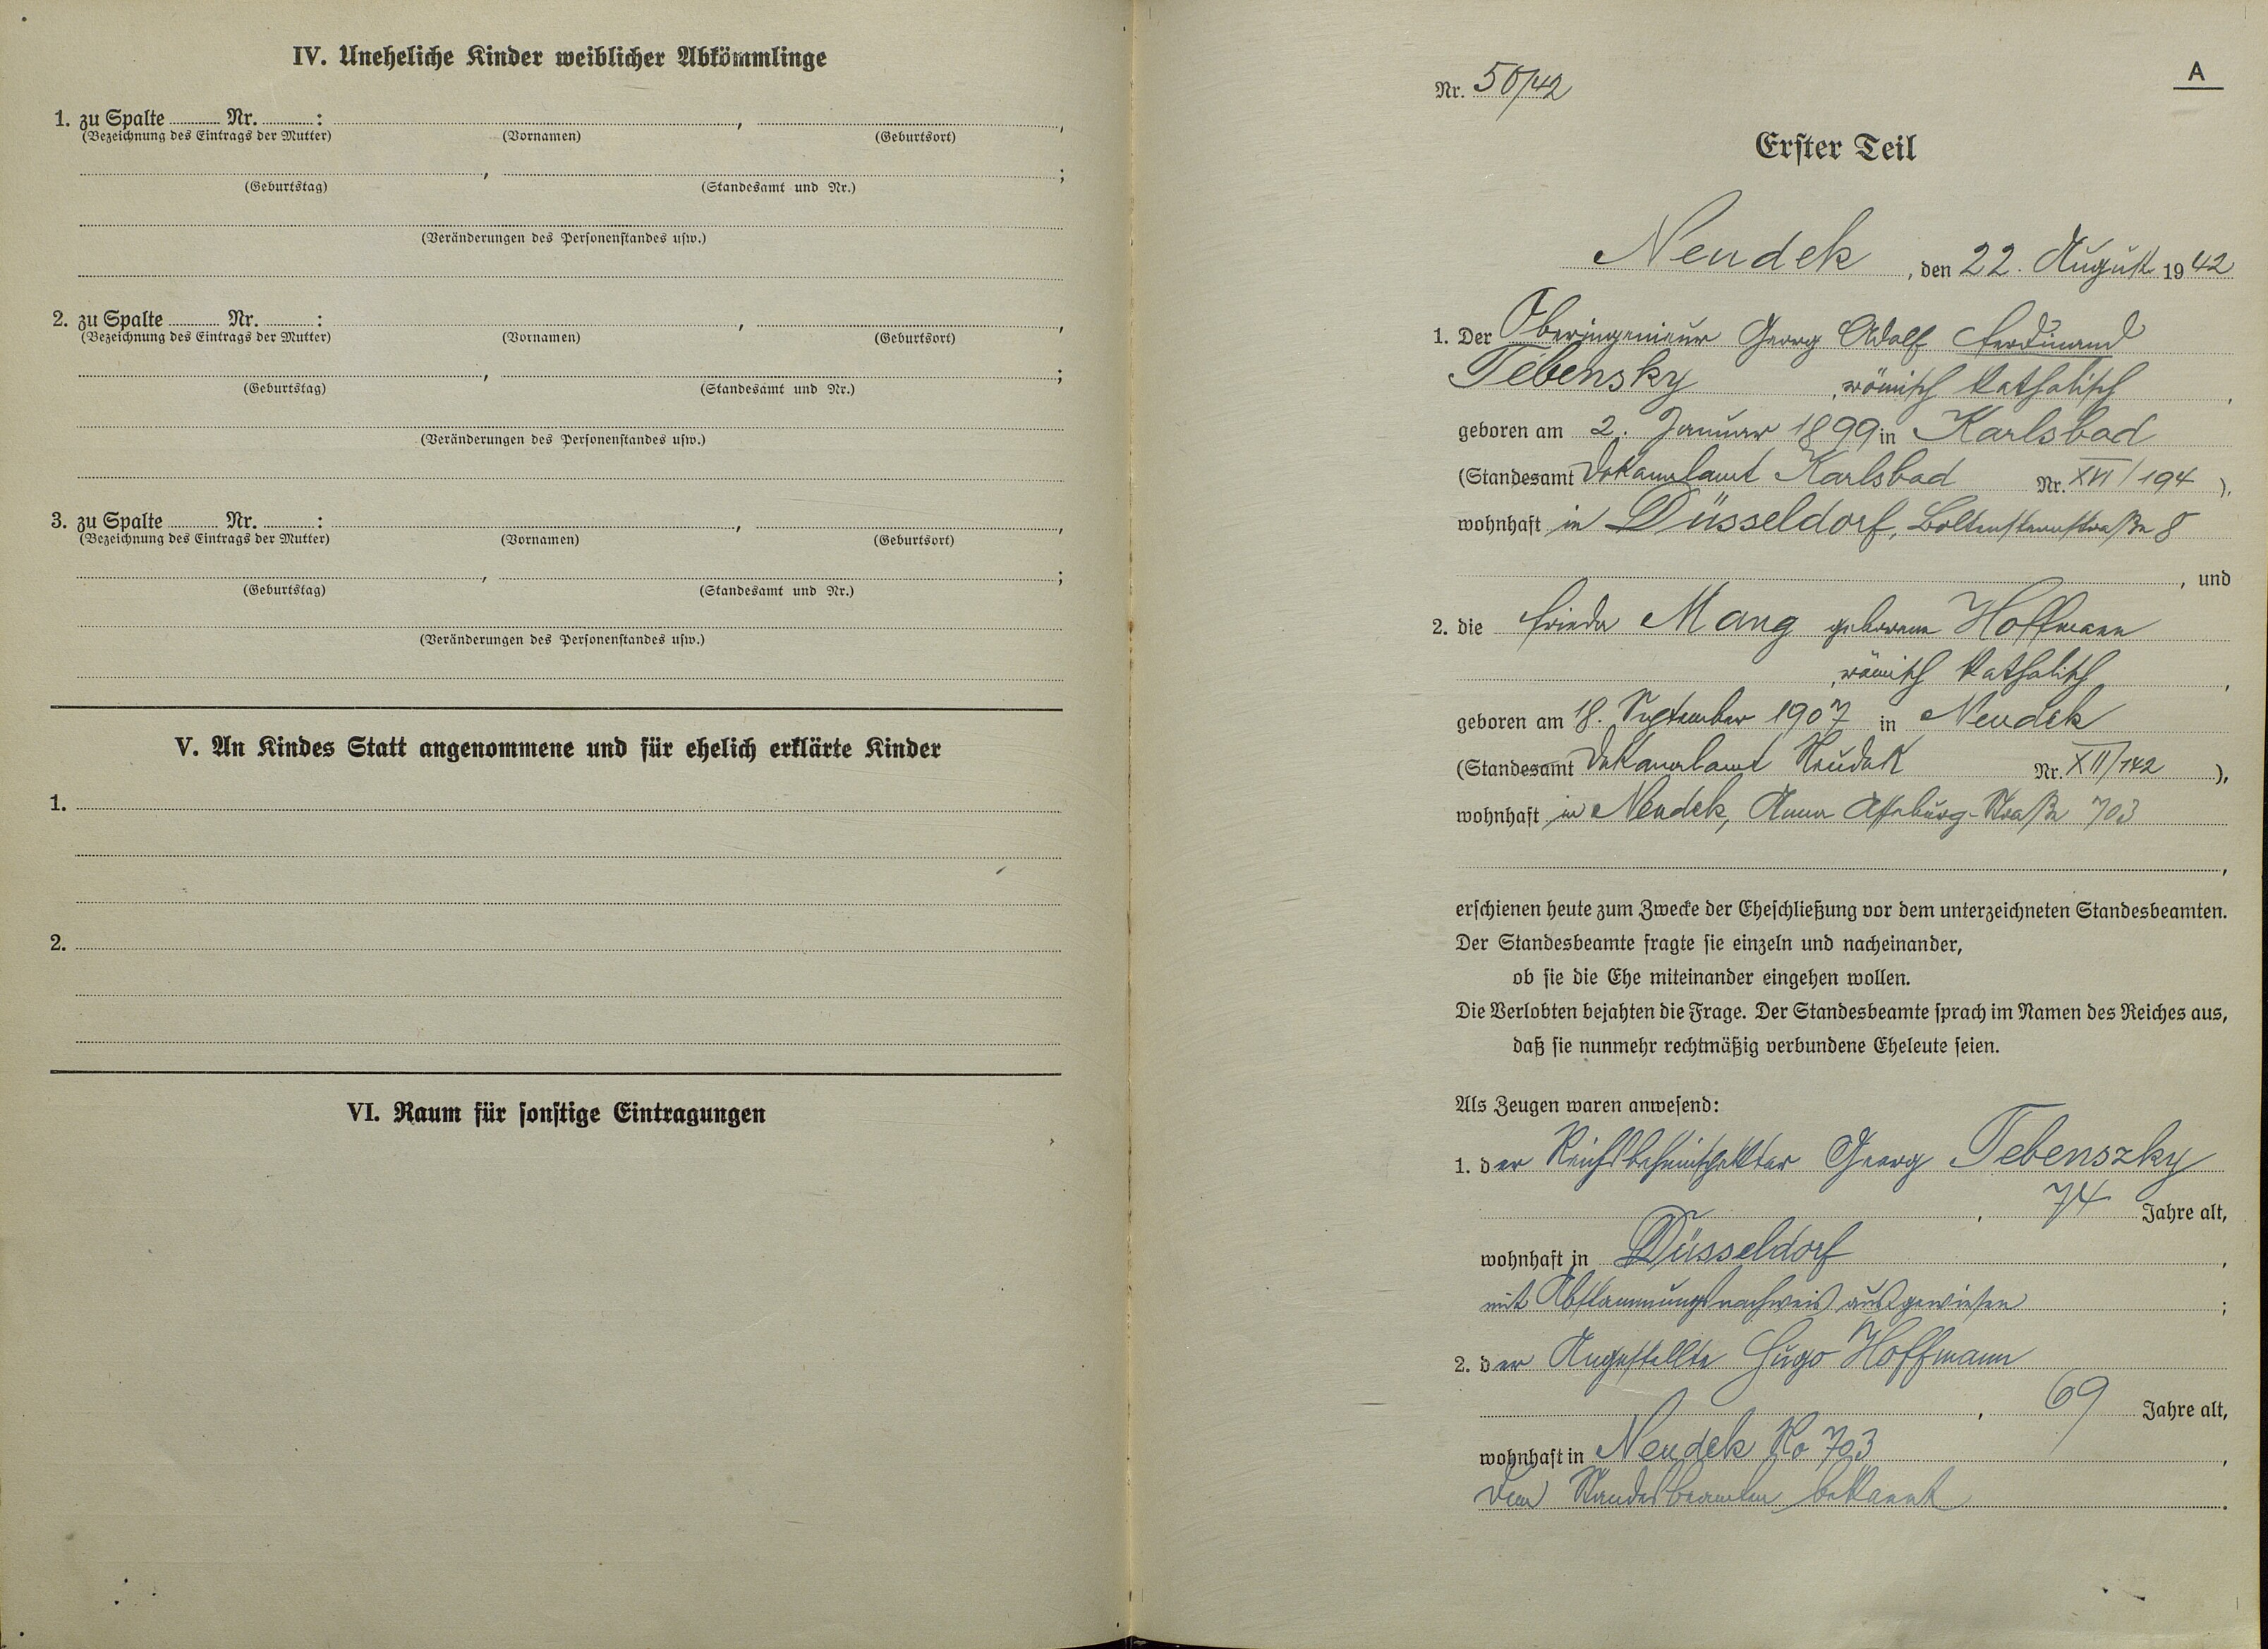 IV. Uneheliche Kinder weiblicher Abkömmlinge
1. zu Spalte ........ Nr. ........ : ........ , ........ ,
(Bezeichnung des Eintrags der Mutter) (Vornamen) (Geburtsort)
........ , ........ ;
(Geburtstag) (Standesamt und Nr.)
(Veränderungen des Personenstandes usw.)
2. zu Spalte ........ Nr. ........ : ........ , ........ ,
(Bezeichnung des Eintrags der Mutter) (Vornamen) (Geburtsort)
........ , ........ ;
(Geburtstag) (Standesamt und Nr.)
(Veränderungen des Personenstandes usw.)
3. zu Spalte ........ Nr. ........ : ........ , ........ ,
(Bezeichnung des Eintrags der Mutter) (Vornamen) (Geburtsort)
........ , ........ ;
(Geburtstag) (Standesamt und Nr.)
(Veränderungen des Personenstandes usw.)
V. An Kindes Statt angenommene und für ehelich erklärte Kinder
1.
2.
VI. Raum für sonstige Eintragungen
A
Nr. 50/42
Erster Teil
Neudek, den 22. August 1942
1. Der Oberingenieur Georg Adolf Ferdinand
Tebensky, römisch katholisch,
geboren am 2. Januar 1899 in Karlsbad
(Standesamt Dekanalamt Karlsbad Nr. XVI/194),
wohnhaft in Düsseldorf, Boltensternstraße 8
, und
2. die Frieda Mang geborene Hoffmann
, römisch katholisch,
geboren am 18. September 1907 in Neudek
(Standesamt Dekanalamt Neudek Nr. XII/142),
wohnhaft in Neudek, Anna Asseburg-Straße 703
,
erschienen heute zum Zwecke der Eheschließung vor dem unterzeichneten Standesbeamten.
Der Standesbeamte fragte sie einzeln und nacheinander,
ob sie die Ehe miteinander eingehen wollen.
Die Verlobten bejahten die Frage. Der Standesbeamte sprach im Namen des Reiches aus,
daß sie nunmehr rechtmäßig verbundene Eheleute seien.
Als Zeugen waren anwesend:
1. der Reichsbahninspektor Georg Tebenszky
, 74 Jahre alt,
wohnhaft in Düsseldorf,
mit Abstammungsnachweis ausgewiesen;
2. der Angestellte Hugo Hoffmann
, 69 Jahre alt,
wohnhaft in Neudek No 703,
dem Standesbeamten bekannt.